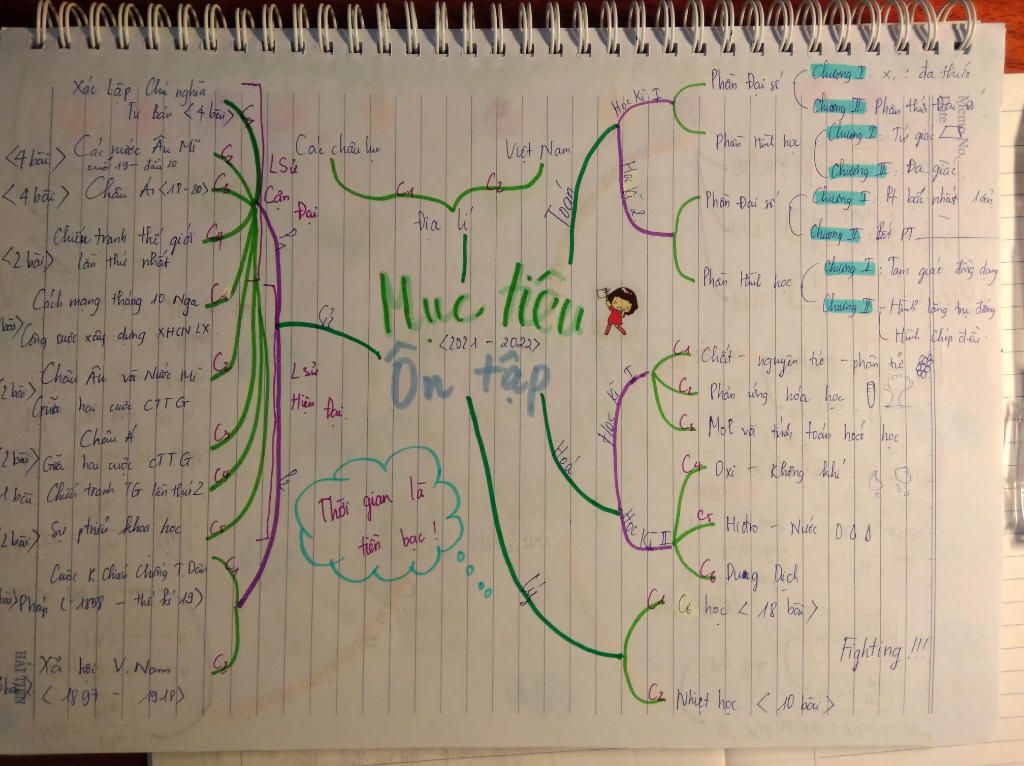 Mục tiêu
<2021 - 2022>
Ôn tập
Thời gian là
tiền bạc!
Địa lí
C1
Các châu lục
C2
Việt Nam
Toán
Học Kì I
Phần Đại số
Chương I
: đa thức
Chương II
Phân thức
Phần Hình học
Chương I : Tứ giác
Chương II : Đa giác
Học Kì 2
Phần Đại số
Chương I : Pt bậc nhất 1 ẩn
Chương II : Bất PT
Phần Hình học
Chương I : Tam giác đồng dạng
Chương II : Hình lăng trụ đứng
Hình chóp đều
Hoá
Học Kì I
C1 Chất - nguyên tử - phân tử
C2 Phản ứng hóa học
C3 Mol và tính toán hoá học
Học Kì II
C4 Oxi - Không khí
C5 Hidro - Nước
C6 Dung Dịch
Lý
C1 Cơ học <18 bài>
C2 Nhiệt học <10 bài>
Fighting !!!
LSử
Cận
Đại
Xác Lập Chủ nghĩa
Tư bản <4 bài>
<4 bài> Các nước Âu Mĩ
cuối 19 - đầu 20
<4 bài> Châu Á <18-20>
C3
Chiến tranh thế giới
<2 bài> lần thứ nhất
C4
LSử
Hiện Đại
Cách mạng tháng 10 Nga
C1
Công cuộc xây dựng XHCN LX
Châu Âu và Nước Mĩ
C2
Giữa hai cuộc CTTG
Châu Á
C3
Giữa hai cuộc CTTG
C4
1 bài Chiến tranh TG lần thứ 2
2 bài> Sự ptriển khoa học
C5
Cuộc K Chiến Chống T.Dân
C1
Pháp (1858 - thế kỉ 19)
Xã hội V.Nam
C2
<1897 - 1918>
HẢI TIẾN